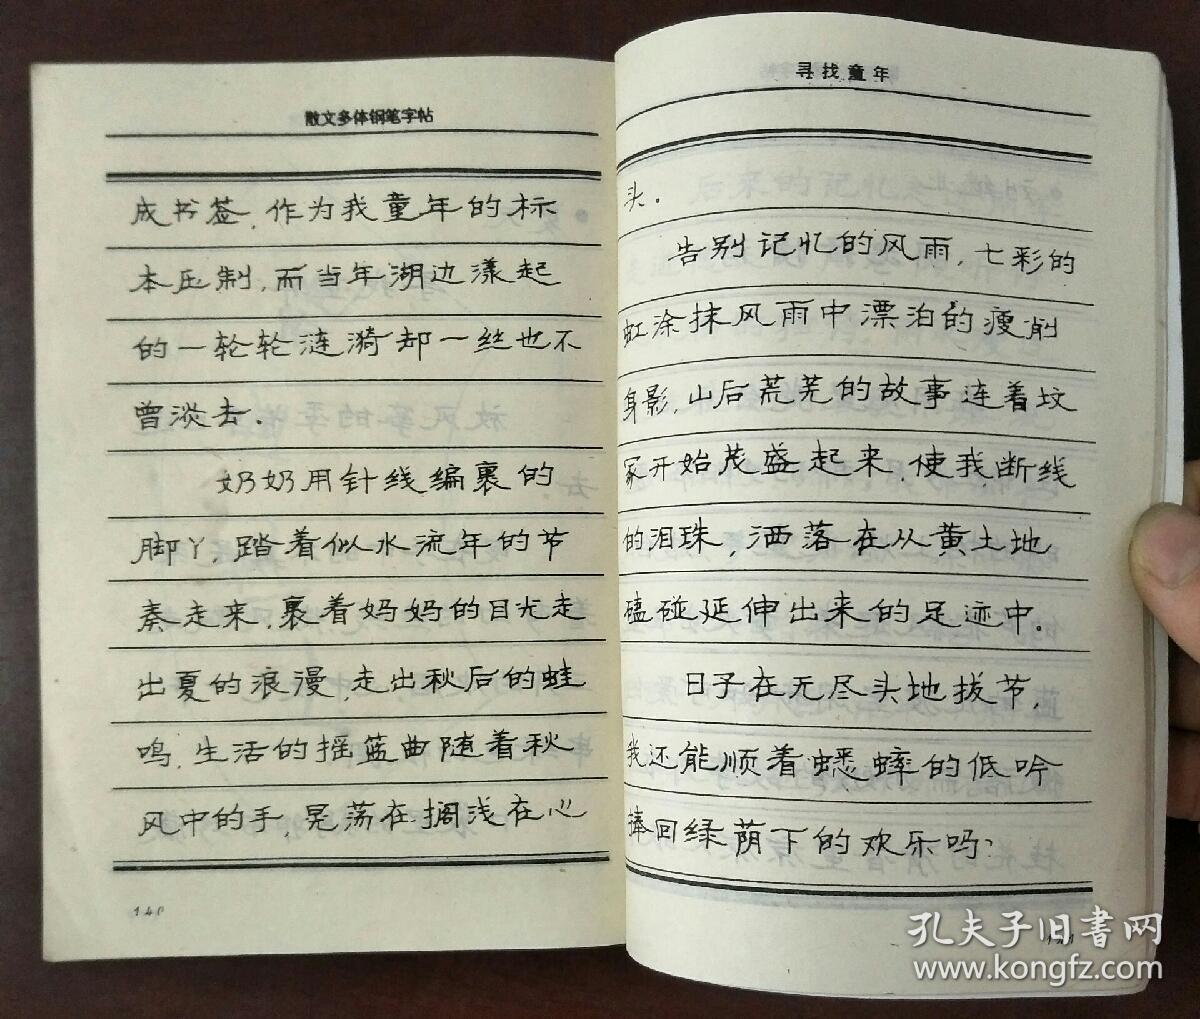 散文多体钢笔字帖
成书签，作为我童年的标
本压制，而当年湖边漾起
的一轮轮涟漪却一丝也不
曾淡去．
奶奶用针线编裹的
脚丫，踏着似水流年的节
奏走来，裹着妈妈的目光走
出夏的浪漫，走出秋后的蛙
鸣，生活的摇篮曲随着秋
风中的手，晃荡在搁浅在心
140
寻找童年
头．
告别记忆的风雨，七彩的
虹涂抹风雨中漂泊的瘦削
身影，山后荒芜的故事连着坟
冢开始茂盛起来，使我断线
的泪珠，洒落在从黄土地
磕碰延伸出来的足迹中。
日子在无尽头地拔节，
我还能顺着蟋蟀的低吟
捧回绿荫下的欢乐吗？
141
孔夫子旧书网
www.kongfz.com